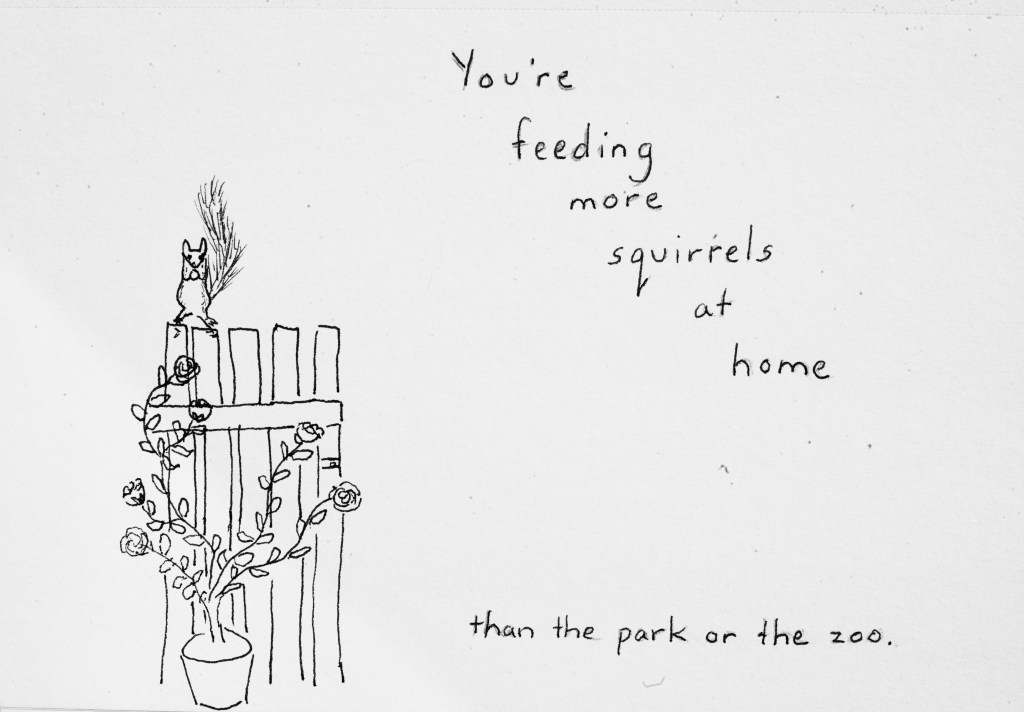 You're
feeding
more
squirrels
at
home
than the park or the zoo.